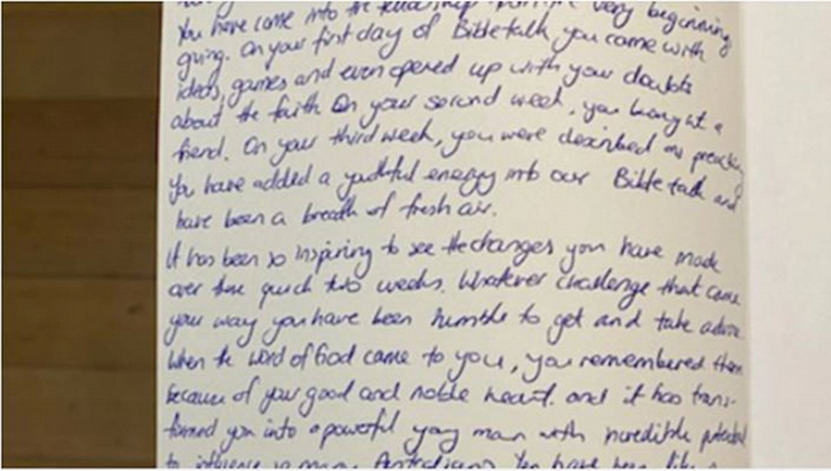 You have come into the fellowship from the very beginning
giving. On your first day of Bible talk, you came with
ideas, games and even opened up with your doubts
about the faith. On your second week, you brought a
friend. On your third week, you were described as preaching
You have added a youthful energy into our Bible talk and
have been a breath of fresh air.
It has been so inspiring to see the changes you have made
over these quick two weeks. Whatever challenge that came
your way you have been humble to get and take advice
When the word of God came to you, you remembered them
because of your good and noble heart. and it has trans-
formed you into a powerful young man with incredible potential
to influence so many Australians. You have been like